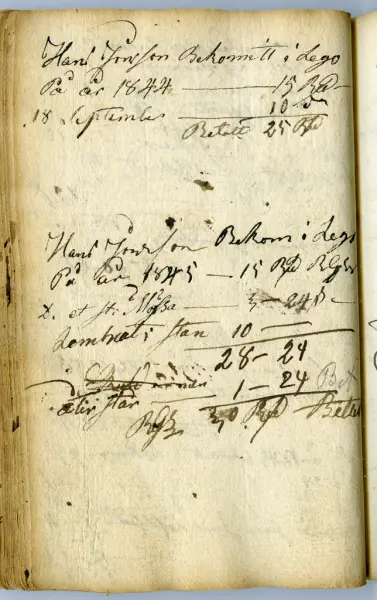 Hans Jönsson Bekomitt i Lego
På år 1844 — 15 Rd —
18 September 10 —
Betalt 25 Rd
Hans Jönsson Bekom i Lego
På år 1845 — 15 Rd RGS
D. et st. Mössa — 3 — 24 s —
Lembnat i stan 10 —
28 — 24
1 — 24 Bet
åter står
RGS 30 Rd Betalt